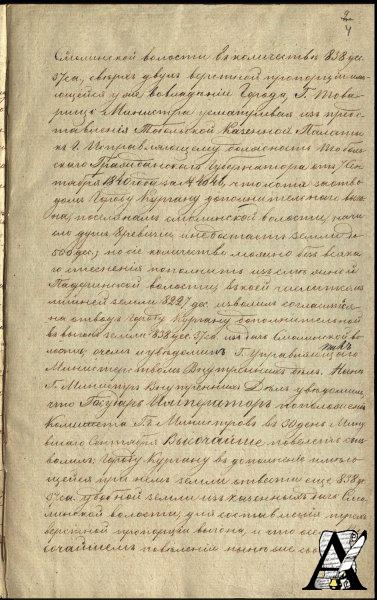 4
Смолинской волости въ количествѣ 838 дес.
57 са., сверхъ двухъ верстной пропорціи
ющейся уже во владѣніи Города, Г. Това-
рищъ Министра усматривая изъ предс-
тавленія Тобольской Казенной Палаты
и Г. Исправляющему должность Тоболь-
скаго Гражданскаго Губернатора отъ 7 Сен-
тября 1840 года за № что хотя за отво-
домъ Городу Кургану дополнительнаго вы-
гона, поселянамъ Смолинской волости, на чи-
сло душъ 8 ревизіи и недостаетъ земли до
500 дес., но сіе количество можно безъ всяка-
го стѣсненія пополнить изъ смѣжной
волости, въ коей числится из-
лишней земли 8227 дес. изволилъ согласиться
на отводъ Городу Кургану дополнительной
въ выгонъ земли 838 дес. 57 са. изъ дачъ Смолинской во-
лости, о чемъ и увѣдомилъ Г. Управляющаго
Министерствомъ Внутреннихъ Дѣлъ. Нынѣ
Г. Министръ Внутреннихъ Дѣлъ увѣдомилъ,
что Государь Императоръ по положенію
Комитета Гг. Министровъ въ 30 день Мину-
вшаго Сентября Высочайше повелѣть со-
волилъ: Городу Кургану въ дополненіе имѣю-
щейся при немъ земли отвести еще 838 д.
57 са. удобной земли изъ казенныхъ дачъ Смо-
линской волости, для составленія
верстной пропорціи выгона, и что о семъ
Высочайшемъ повелѣніи